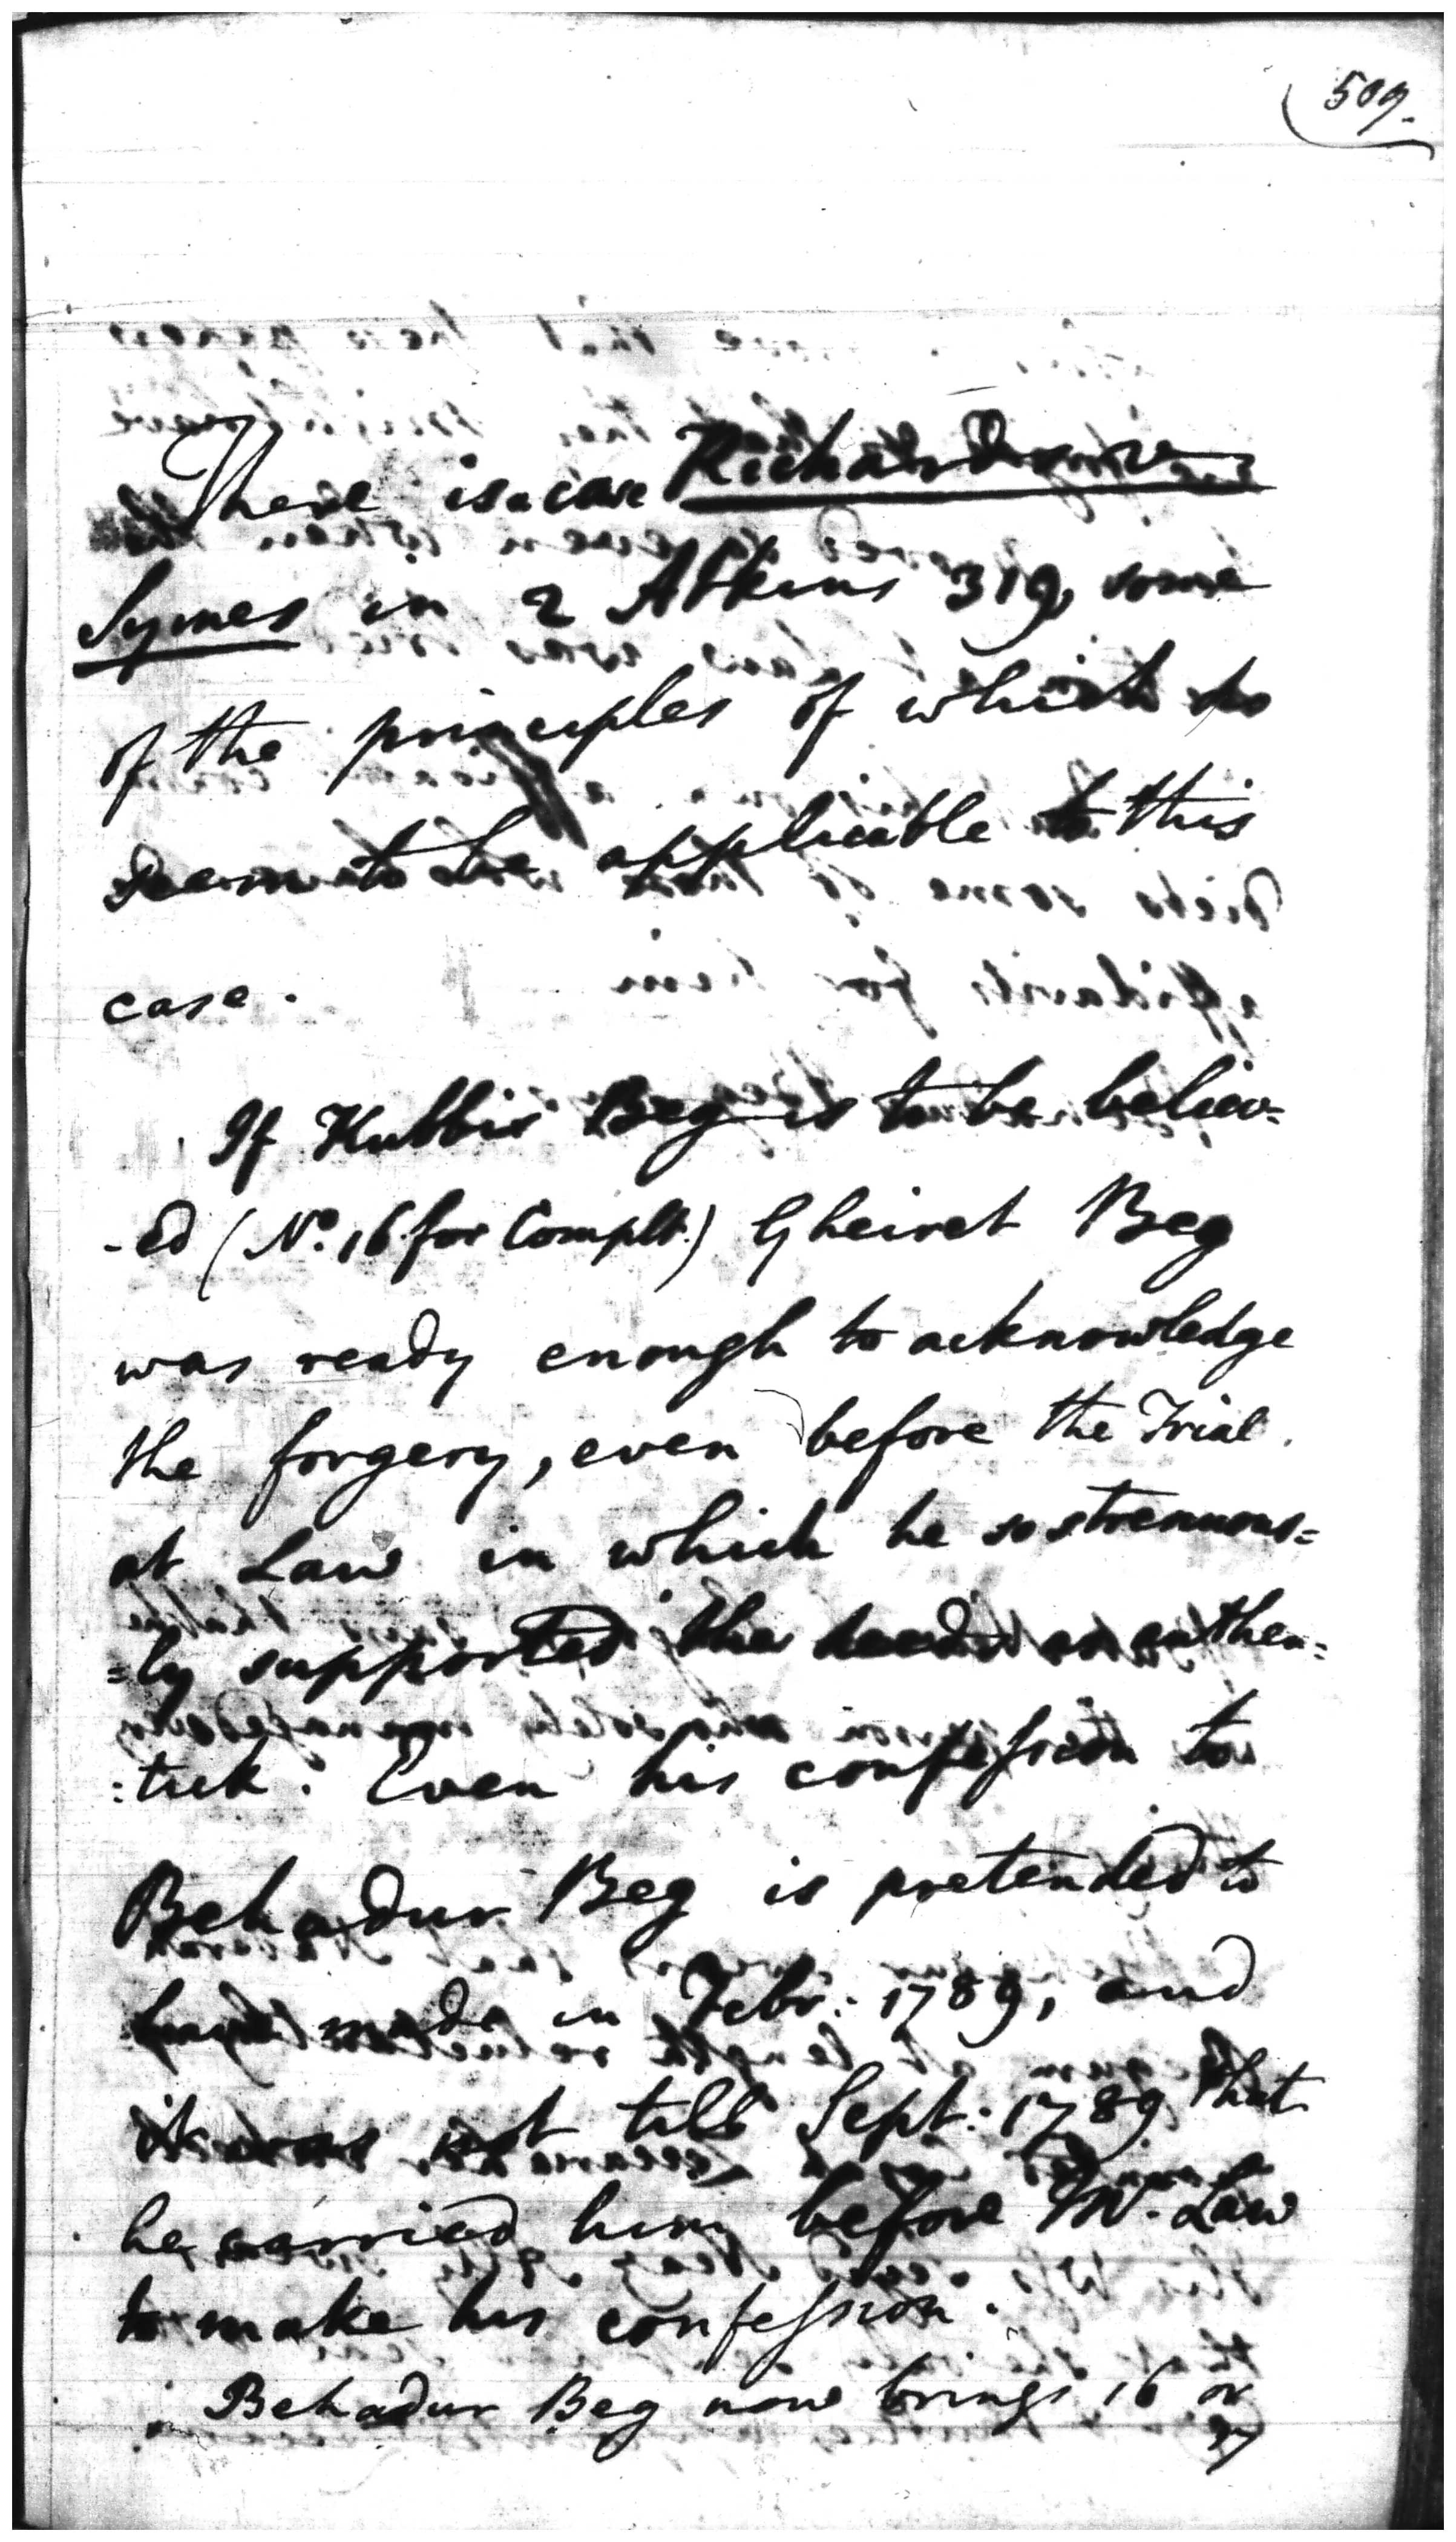 509.
There is a case Richardson v
Symes in 2 Atkins 319, some
of the principles of which do
seem to be applicable to this
case.
If Kubbir Beg is to be believ=
-ed (No. 16 for Complt.) Gheiret Beg
was ready enough to acknowledge
the forgery, even before the Trial
at Law in which he so strenuous=
=ly supported the deeds as authen=
:tick. Even his confession to
Behadur Beg is pretended to
have made in Febr: 1789, and
it was not till Sept: 1789 that
he carried him before Mr. Law
to make his confession.
Behadur Beg now brings 16 or
17